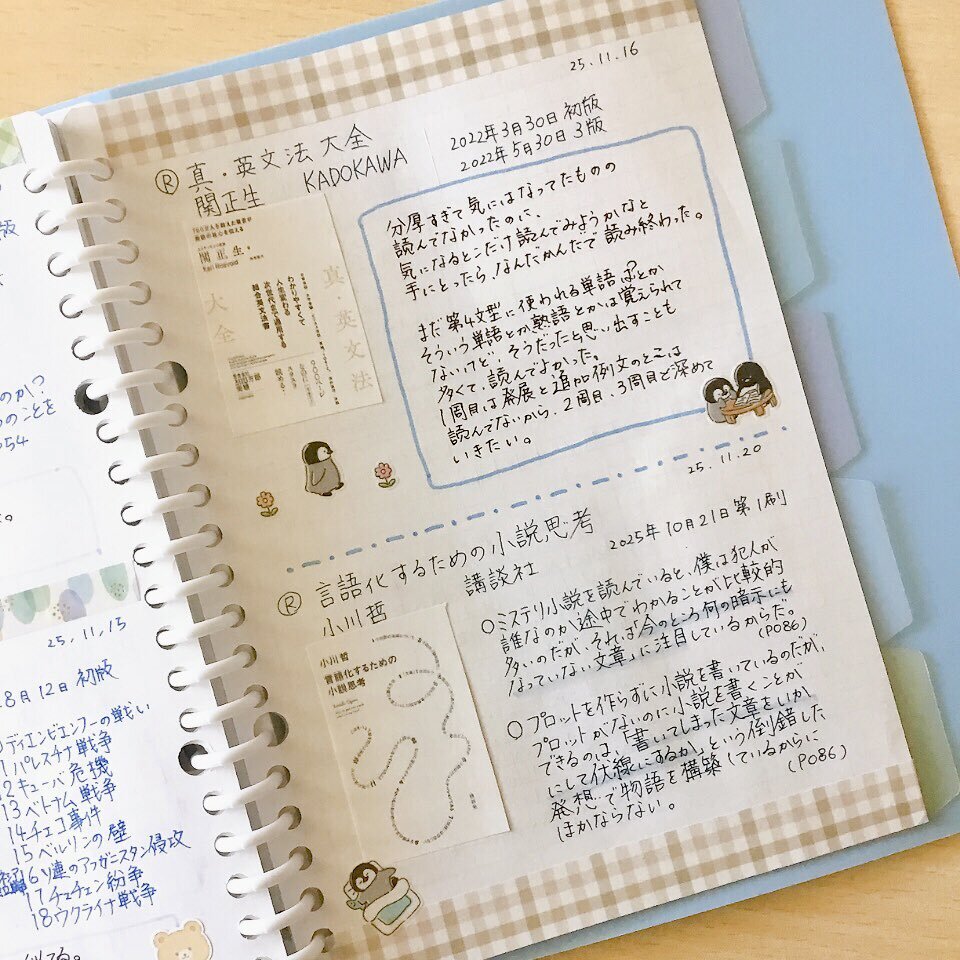 版
のか?
のことを
054
。
25.11.15
8月12日 初版
ディエンビエンフーの戦い
1パレスチナ戦争
2キューバ危機
13ベトナム戦争
14チェコ事件
15ベルリンの壁
16ソ連のアフガニスタン侵攻
17チェチェン紛争
18ウクライナ戦争
25.11.16
Ⓡ 真・英文法大全
関正生 KADOKAWA
2022年3月30日 初版
2022年5月30日 3版
関正生
Kari Rosvold
わかりやすくて
人生変わる
次世代まで通用する
総合英文法書
真・英文法
大全
分厚すぎて気にはなってたものの
読んでなかったのに、
気になるとこだけ読んでみようかなと
手にとったら、なんだかんだで読み終わった。
まだ第4文型に使われる単語はとか
そういう単語とか熟語とかは覚えられて
ないけど、そうだったと思い出すことも
多くて、読んでよかった。
1周目は発展と追加例文のとこは
読んでないから、2周目、3周目と深めて
いきたい。
25.11.20
Ⓡ 言語化するための小説思考
小川哲 講談社
2025年10月21日第1刷
小川哲
言語化するための
小説思考
○ミステリ小説を読んでいると、僕は犯人が
誰なのか途中でわかることが比較的
多いのだが、それは「今のところ何の暗示にも
なっていない文章」に注目しているからだ。
(P086)
○プロットを作らずに小説を書いているのだが、
プロットがないのに小説を書くことが
できるのは、「書いてしまった文章をいか
にして伏線にするか」という倒錯した
発想で物語を構築しているからに
ほかならない。 (P086)